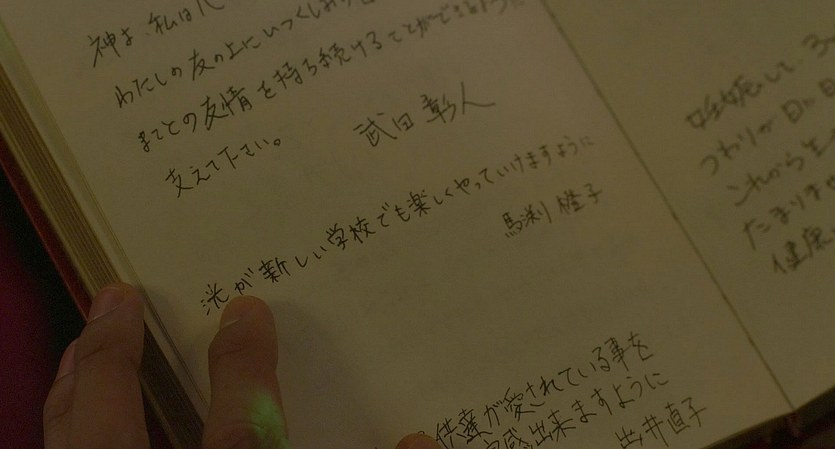 神よ、私は
わたしの友の上にいつくしみ
までとの友情を持ち続けることができるように
支えて下さい。
武田 彰人
洸が新しい学校でも楽しくやっていけますように
馬渕 橙子
供達が愛されている事を
実感出来ますように
出井直子
妊娠して、3
つわりが日に日
これから生
たまりませ
健康